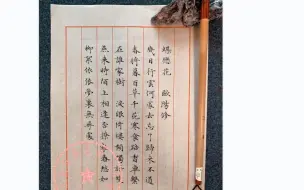 蝶戀花　歐陽修
幾日行雲何處去忘了歸來不道
春將暮百草千花寒食路香車繫
在誰家樹　淚眼倚樓頻獨語雙
燕來時陌上相逢否撩亂春愁如
柳絮依依夢裏無尋處